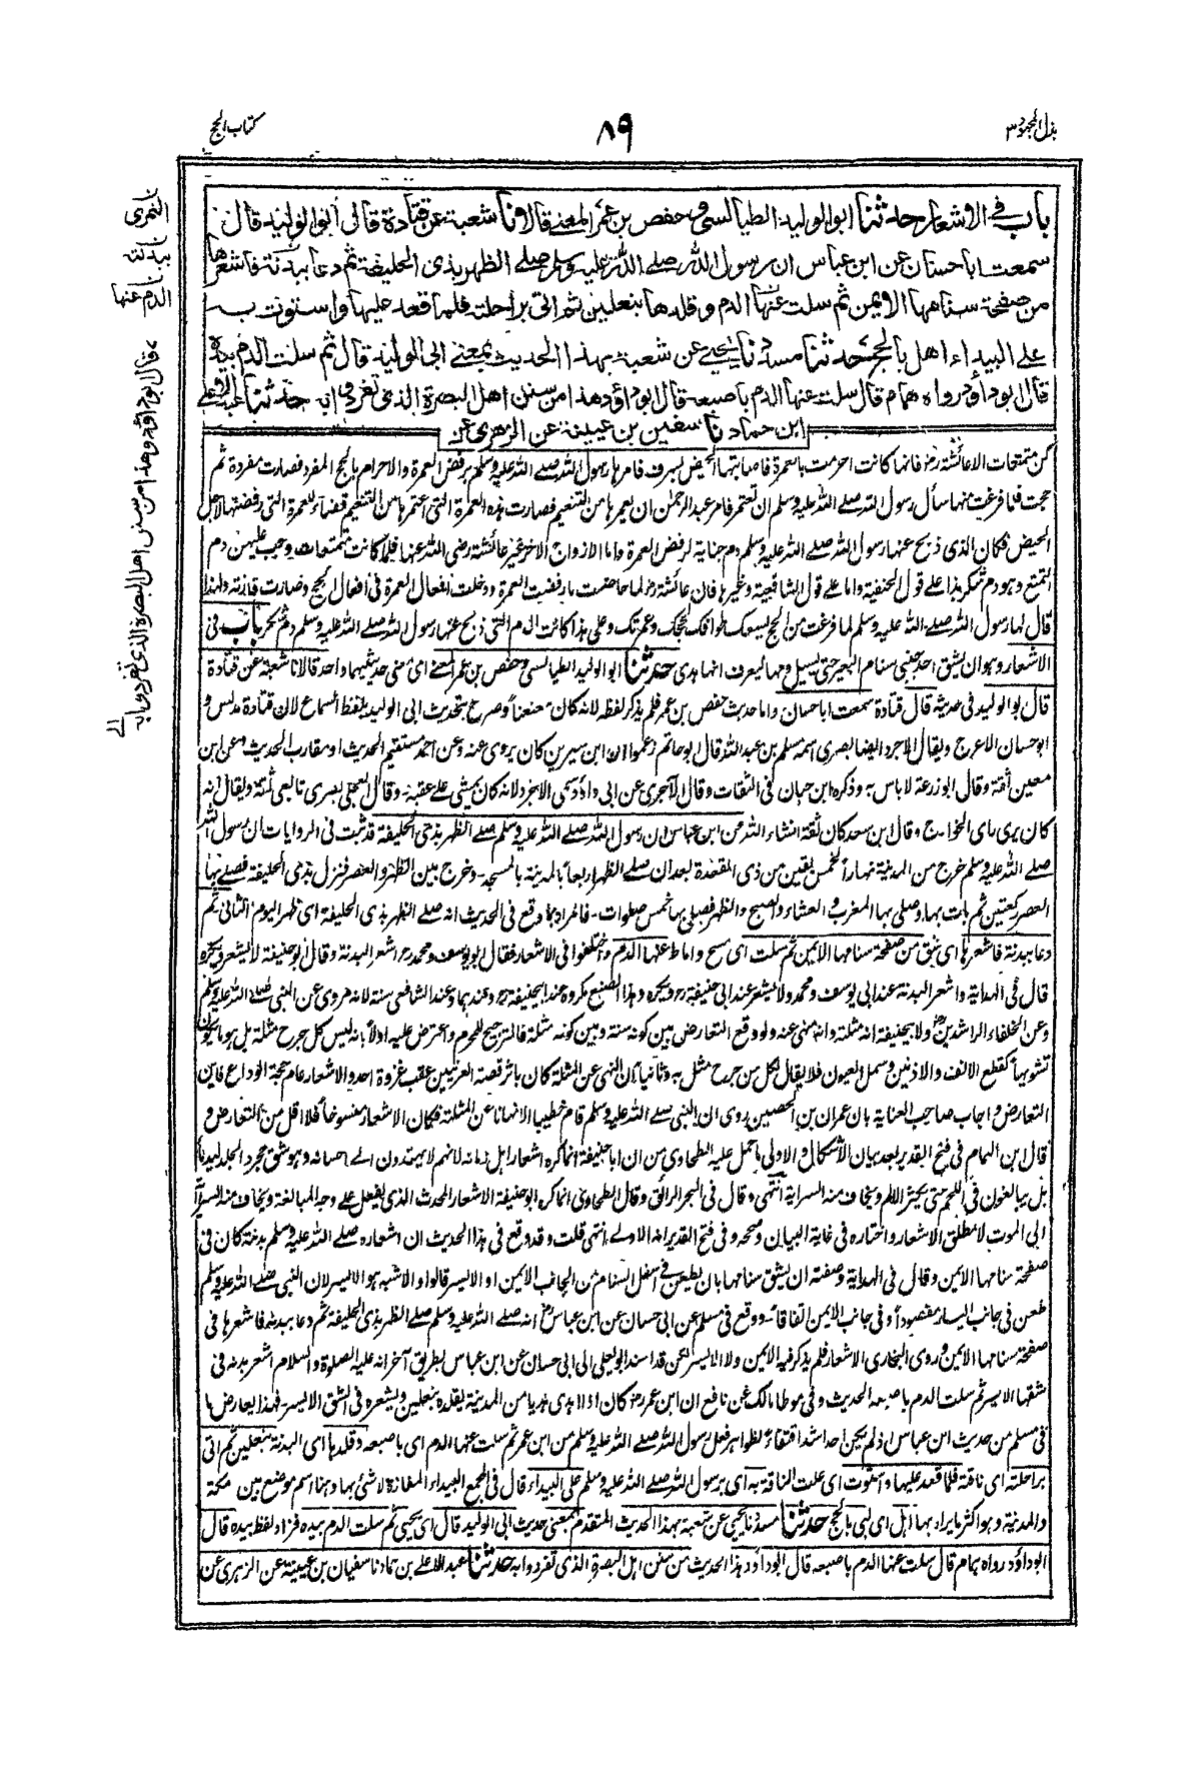 بذل المجهود ٣
٨٩
كتاب الحج
باب في الاشعار حدثنا ابو الوليد الطيالسي وحفص بن عمر المعنى قالا نا شعبة عن قتادة قال ابو الوليد قال
سمعت ابا حسان عن ابن عباس ان رسول الله صلى الله عليه وسلم صلى الظهر بذي الحليفة ثم دعا ببدنة فاشعرها
من صفحة سنامها الايمن ثم سلت عنها الدم وقلدها بنعلين ثم اتي براحلته فلما قعد عليها واستوت به
على البيداء اهل بالحج حدثنا مسدد نا يحيى عن شعبة بهذا الحديث بمعنى ابي الوليد قال ثم سلت الدم بيده
قال ابو داؤد رواه همام قال سلت عنها الدم باصبعه قال ابو داؤد هذا من سنن اهل البصرة الذي تفردوا به حدثنا عبد الاعلى
ابن حماد نا سفين بن عيينة عن الزهري عن
كن متمتعات الا عائشة رض فانها كانت احرمت بالعمرة فاصابتها الحيض بسرف فامرها رسول الله صلى الله عليه وسلم برفض العمرة والاحرام بالحج المفرد فصارت مفردة ثم
حجت فلما فرغت منها سأل رسول الله صلى الله عليه وسلم ان تعتمر فامر عبد الرحمن ان يعمرها من التنعيم فصارت هذه العمرة التي اعتمرها من التنعيم قضاء للعمرة التي رفضتها لاجل
الحيض فكان الذي ذبح عنها رسول الله صلى الله عليه وسلم دم جناية لرفض العمرة واما الازواج الاخر غير عائشة رضي الله عنها فلما كانت متمتعات وجب عليهن دم
التمتع وهو دم شكر هذا على قول الحنفية واما على قول الشافعية وغيرها فان عائشة رض لما حاضت ما رفضت العمرة ودخلت افعال العمرة في افعال الحج وصارت قارنة ولهذا
قال لها رسول الله صلى الله عليه وسلم لما فرغت من الحج يسعك طوافك لحجك وعمرتك وعلى هذا كانت الدم التي ذبح عنها رسول الله صلى الله عليه وسلم دم شكر باب في
الاشعار وهو ان يشق احد جنبي سنام البعير حتى يسيل دمها ليعرف انها هدي حدثنا ابو الوليد الطيالسي وحفص بن عمر المعنى اي معنى حديثيهما واحد قالا نا شعبة عن قتادة
قال ابو الوليد في حديثه قال قتادة سمعت ابا حسان واما حديث حفص بن عمر فلم يذكر لفظه لانه كان معنعنا وصرح بتحديث ابي الوليد بلفظ السماع لان قتادة مدلس و
ابو حسان الاعرج ويقال الاجرد ايضا بصري اسمه مسلم بن عبد الله قال ابو حاتم زعموا ان ابن سيرين كان يروي عنه وعن احمد مستقيم الحديث او مقارب الحديث وعن ابن
معين ثقة وقال ابو زرعة لا باس به وذكره ابن حبان في الثقات وقال الآجري عن ابي داؤد سمي الاجرد لانه كان يمشي على عقبه وقال العجلي بصري تابعي ثقة ويقال انه
كان يرى راي الخوارج وقال ابن سعد كان ثقة انشاء الله عن ابن عباس ان رسول الله صلى الله عليه وسلم صلى الظهر بذي الحليفة قد ثبت في الروايات ان رسول الله
صلى الله عليه وسلم خرج من المدينة نهارا لخمس بقين من ذي القعدة بعد ان صلى الظهر اربعا بالمدينة بالمسجد وخرج بين الظهر والعصر فنزل بذي الحليفة فصلى بها
العصر ركعتين ثم بات بها وصلى بها المغرب والعشاء والصبح والظهر فصلى بها خمس صلوات فالمراد بما وقع في الحديث انه صلى الظهر بذي الحليفة اي ظهر اليوم الثاني ثم
دعا ببدنة فاشعرها اي شق من صفحة سنامها الايمن ثم سلت اي مسح واماط عنها الدم واختلفوا في الاشعار فقال ابو يوسف ومحمد رح اشعر البدنة وقال ابو حنيفة لا يشعر ويكره
قال في الهداية واشعر البدنة عند ابي يوسف ومحمد ولا يشعر عند ابي حنيفة رح ويكره وهذا الصنع مكروه عند ابي حنيفة رح وعندهما وعند الشافعي سنة لانه مروي عن النبي صلى الله عليه وسلم
وعن الخلفاء الراشدين رض ولابي حنيفة انه مثلة وانه منهي عنه ولو وقع التعارض بين كونه سنة وبين كونه مثلة فالترجيح للمحرم واعترض عليه اولا بانه ليس كل جرح مثلة بل هو ما يكون
تشويها كقطع الانف والاذنين وسمل العيون فلا يقال لكل من جرح مثل به وثانيا بان النهي عن المثلة كان باثر قصة العرنيين عقب غزوة احد والاشعار عام حجة الوداع فاين
التعارض واجاب صاحب العناية بان عمران بن الحصين روى ان النبي صلى الله عليه وسلم ما قام خطيبا الا نهانا عن المثلة فكان الاشعار منسوخا فلا اقل من التعارض و
قال ابن الهمام في فتح القدير بعد بيان الاشكال والاولى ما حمل عليه الطحاوي من ان ابا حنيفة انما كره اشعار اهل زمانه لانهم لا يهتدون الى احسانه وهو شق مجرد الجلد ليدما
بل يبالغون في اللحم حتى يكثر الالم ويخاف منه السراية انتهى وقال في البحر الرائق وقال الطحاوي انما كره ابو حنيفة الاشعار المحدث الذي يفعل على وجه المبالغة ويخاف منه السراية
الى الموت لا مطلق الاشعار واختاره في غاية البيان وصححه وفي فتح القدير انه الاولى انتهى قلت وقد وقع في هذا الحديث ان اشعاره صلى الله عليه وسلم بدنته كان في
صفحة سنامها الايمن وقال في الهداية وصفته ان يشق سنامها بان يطعن في اسفل السنام من الجانب الايمن او الايسر قالوا والاشبه هو الايسر لان النبي صلى الله عليه وسلم
طعن في جانب اليسار مقصودا وفي جانب الايمن اتفاقا ووقع في مسلم عن ابي حسان عن ابن عباس رض انه صلى الله عليه وسلم صلى الظهر بذي الحليفة ثم دعا ببدنة فاشعرها في
صفحة سنامها الايمن وروى البخاري الاشعار فلم يذكر فيه الايمن ولا الايسر لكن قد اسند ابو يعلى الى ابي حسان عن ابن عباس بطريق آخر انه عليه الصلوة والسلام اشعر بدنه في
شقها الايسر ثم سلت الدم باصبعه الحديث وفي موطا مالك عن نافع ان ابن عمر رض كان اذا اهدى هديا من المدينة يقلده بنعلين ويشعره في الشق الايسر فهذا يعارض ما
في مسلم من حديث ابن عباس اذ لم يكن احد اشد اقتفاء لظواهر فعل رسول الله صلى الله عليه وسلم من ابن عمر ثم سلت عنها الدم اي باصبعه وقلدها اي البدنة بنعلين ثم اتي
براحلته اي ناقة فلما قعد عليها واستوت اي علت الناقة به اي برسول الله صلى الله عليه وسلم على البيداء قال في المجمع البيداء المفازة لا شئ بها وهنا اسم موضع بين مكة
والمدينة وهو اكثر ما يراد بها اهل اي لبى بالحج حدثنا مسدد نا يحيى عن شعبة بهذا الحديث المتقدم بمعنى حديث ابي الوليد قال اي يحيى ثم سلت الدم بيده فزاد لفظ بيده قال
ابو داؤد رواه همام قال سلت عنها الدم باصبعه قال ابو داؤد هذا الحديث من سنن اهل البصرة الذي تفردوا به حدثنا عبد الاعلى بن حماد نا سفيان بن عيينة عن الزهري عن
النمري
ببدنته
الدم عنها
قال ابو داؤد وهذا من سنن اهل البصرة الذي تفردوا به